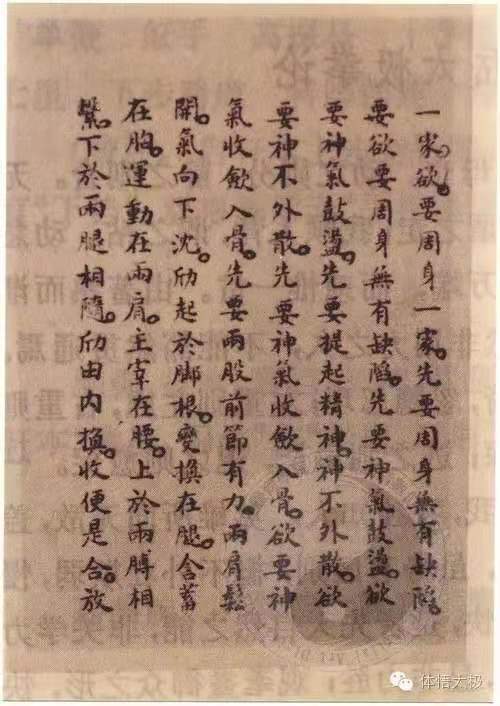 一家。欲要周身一家。先要周身無有缺陷。
要欲要周身無有缺陷。先要神氣鼓盪。欲
要神氣鼓盪。先要提起精神。神不外散。欲
要神不外散。先要神氣收歛入骨。欲要神
氣收歛入骨。先要兩股前節有力。兩肩鬆
開。氣向下沈。劤起於脚根。變換在腿。含蓄
在胸。運動在兩肩。主宰在腰。上於兩膊相
繫。下於兩腿相隨。劤由內換。收便是合。放
体悟太极